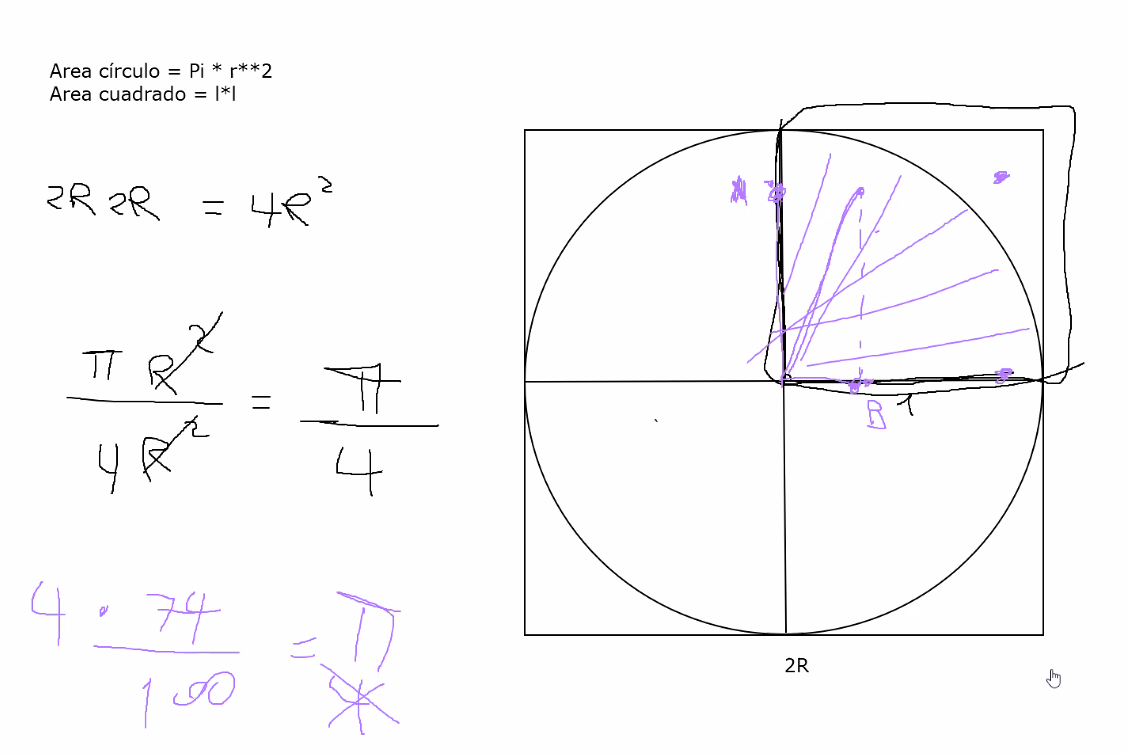 Area círculo = Pi * r**2
Area cuadrado = l*l
2R 2R = 4R²
π R² / 4 R² = π / 4
4 · 74 / 100 = π / 4
B 1
2R